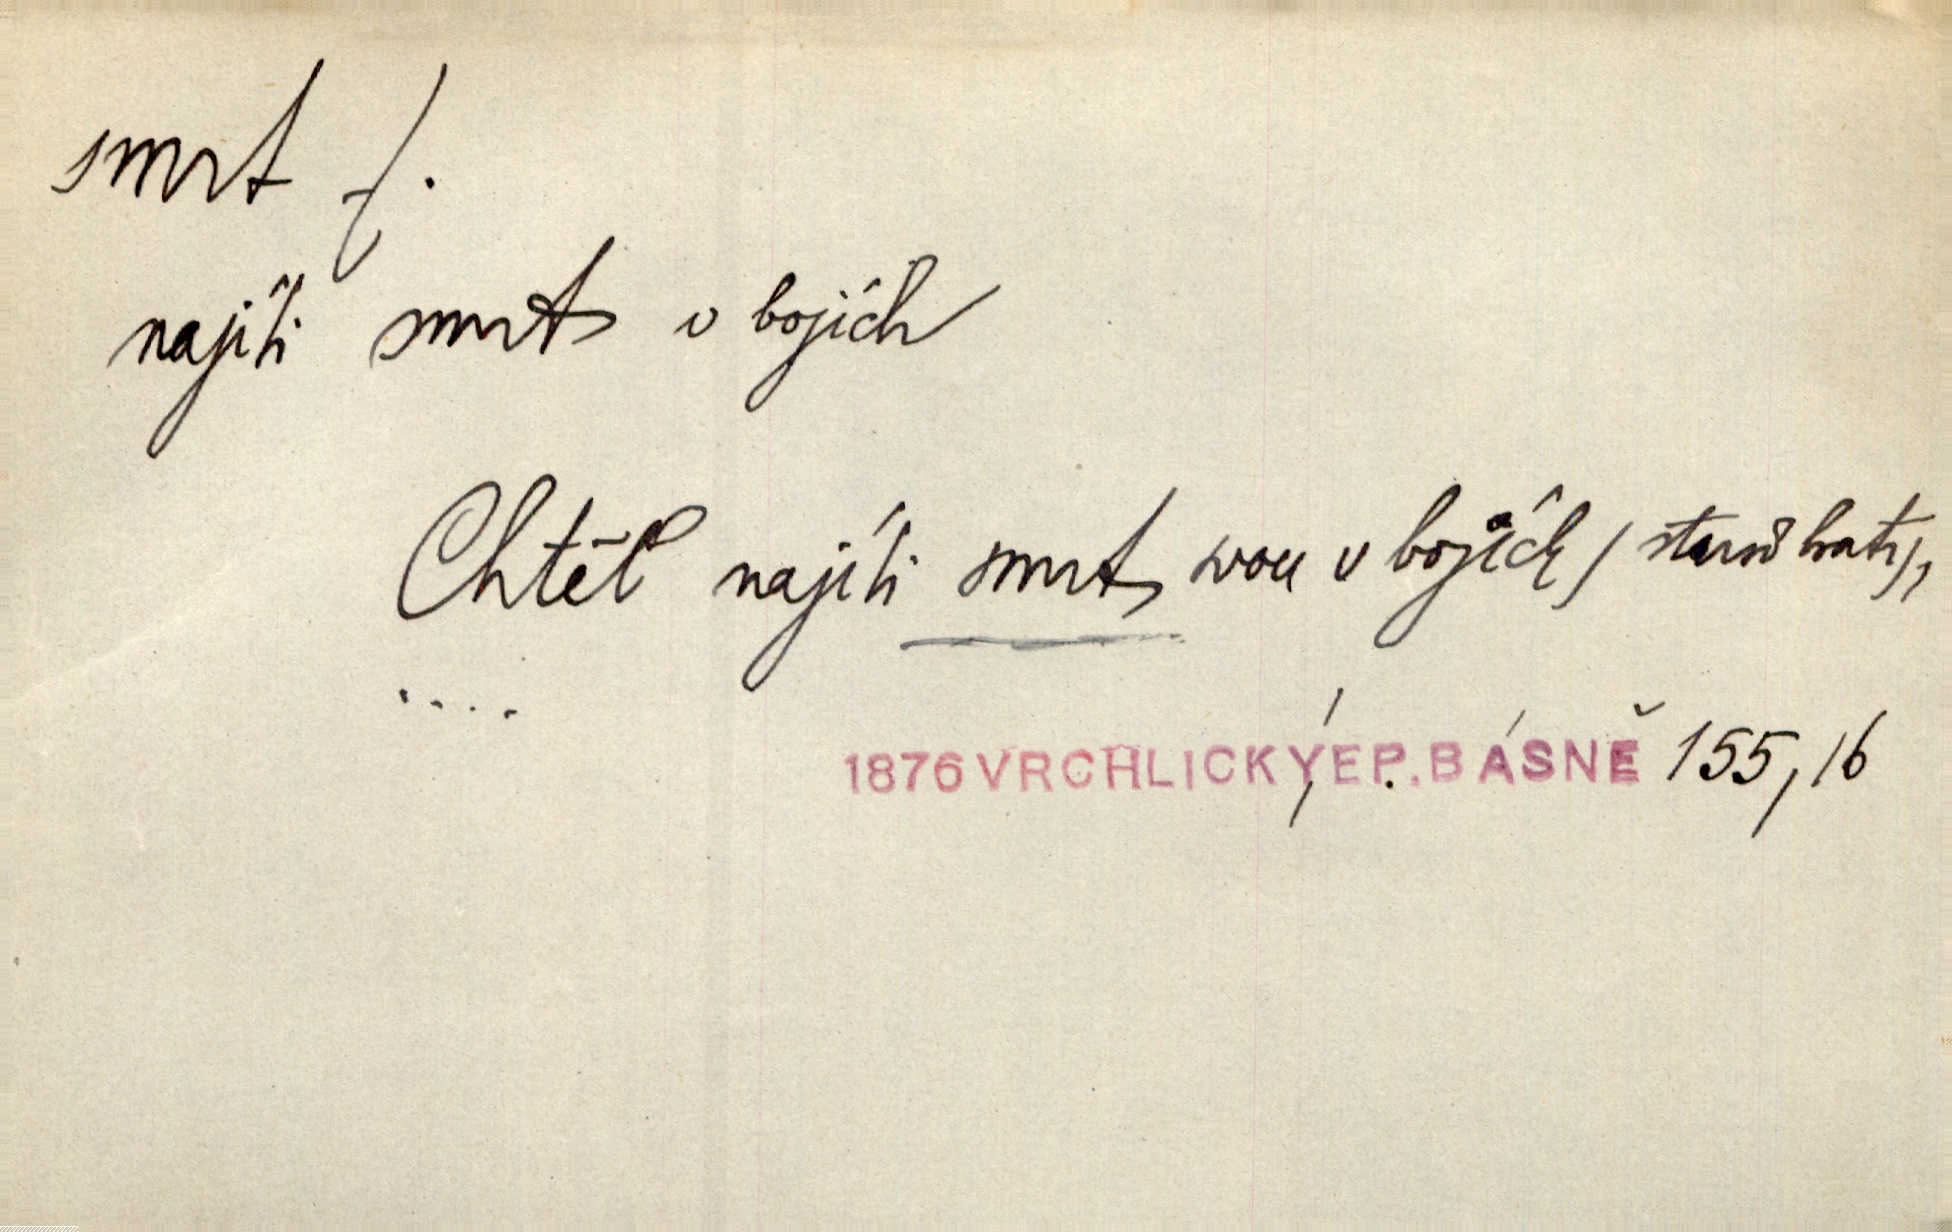 smrt f.
najíti smrt v bojích
Chtěl najíti smrt svou v bojích /
....
1876 VRCHLICKÝ, EP. BÁSNĚ 155,16